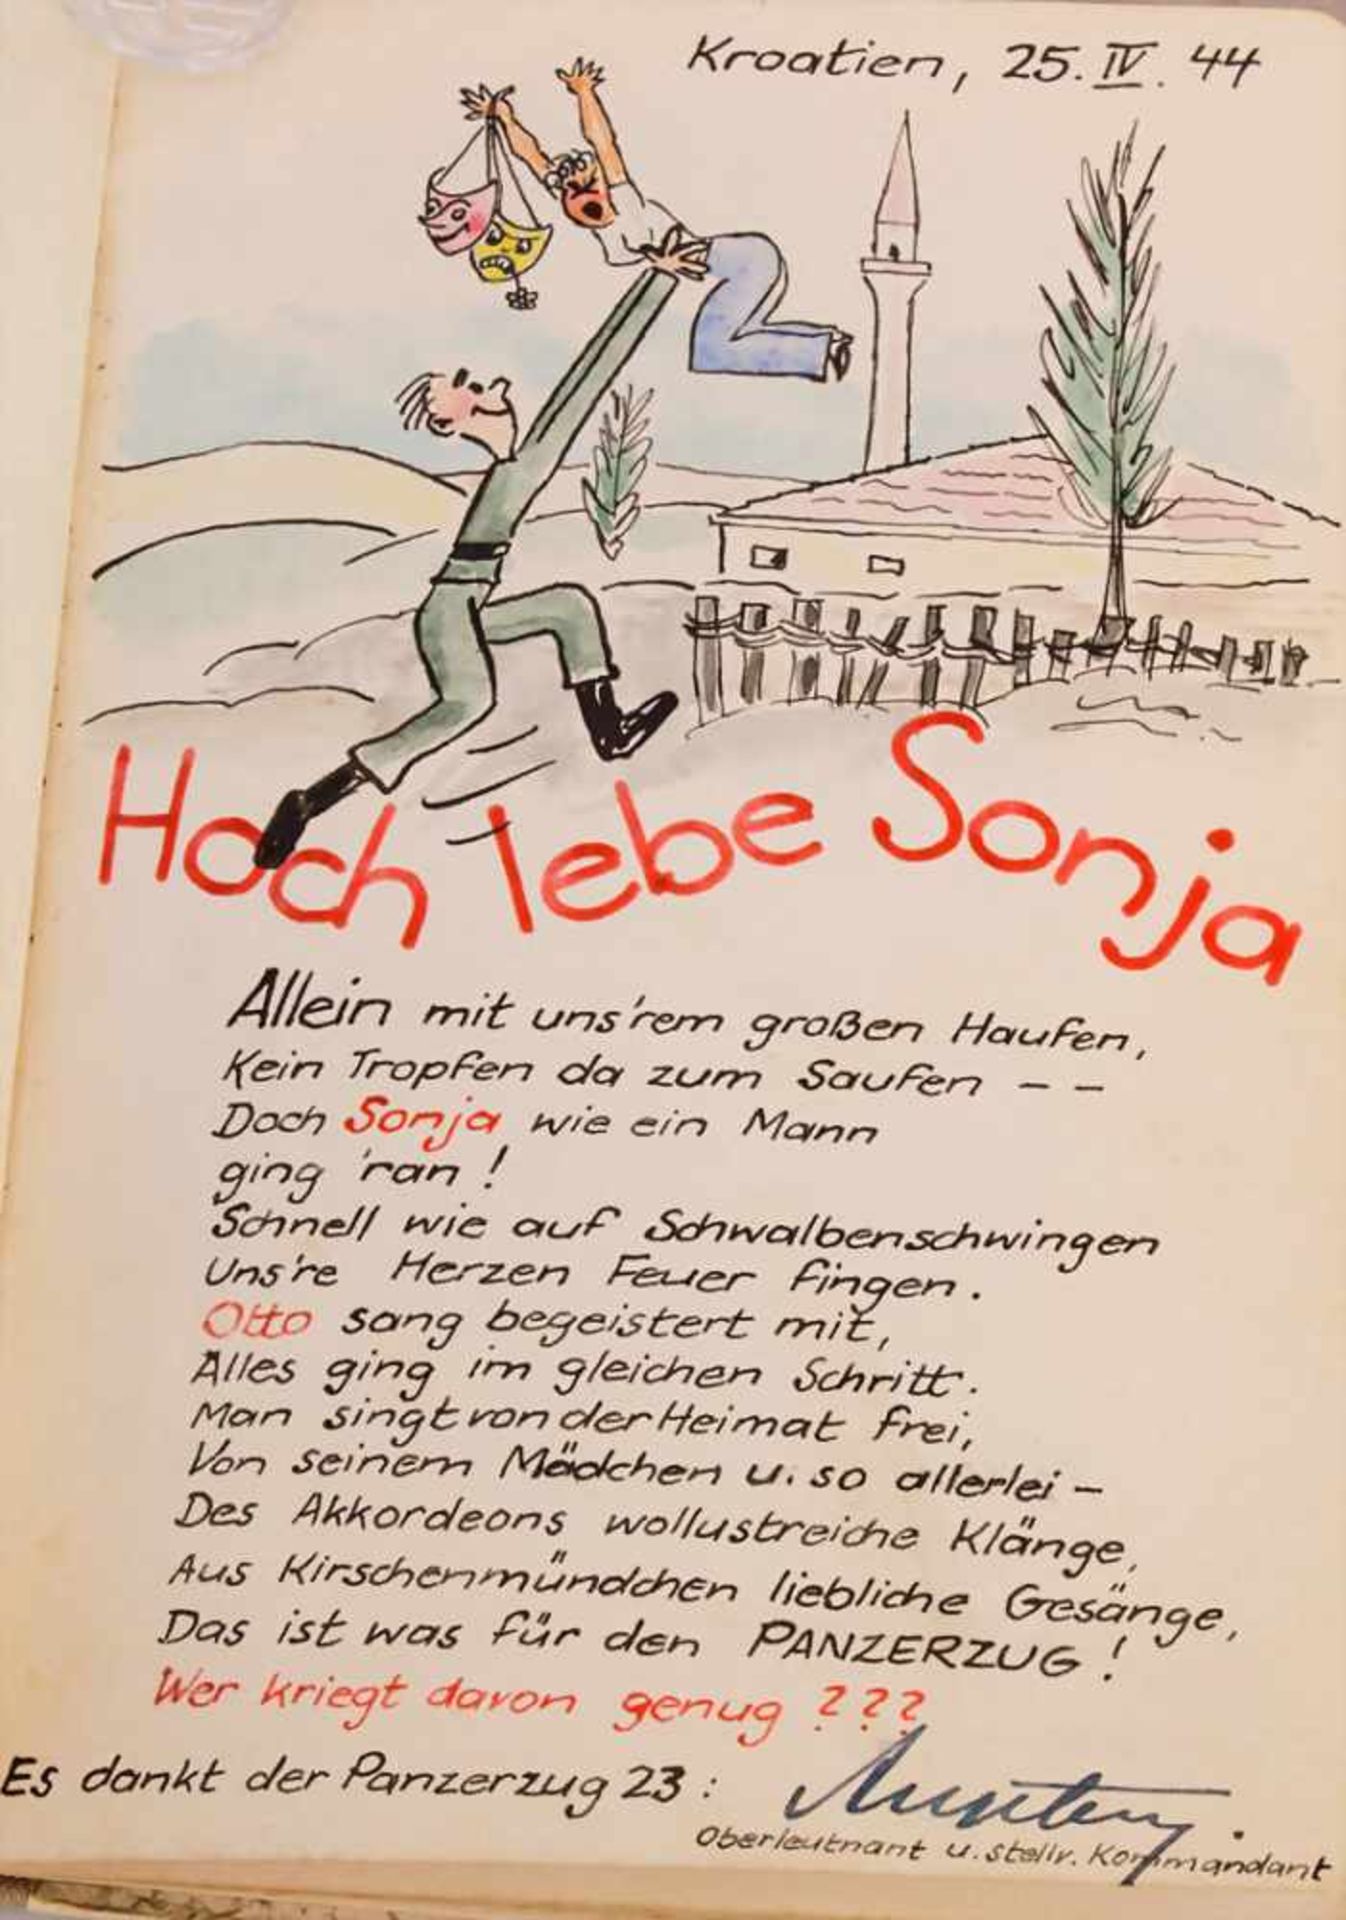 Kroatien, 25. IV. 44
Hoch lebe Sonja
Allein mit uns'rem großen Haufen,
Kein Tropfen da zum Saufen – –
Doch Sonja wie ein Mann
ging 'ran !
Schnell wie auf Schwalbenschwingen
Uns're Herzen Feuer fingen.
Otto sang begeistert mit,
Alles ging im gleichen Schritt.
Man singt von der Heimat frei,
Von seinem Mädchen u. so allerlei –
Des Akkordeons wollustreiche Klänge,
Aus Kirschenmündchen liebliche Gesänge,
Das ist was für den PANZERZUG !
Wer kriegt davon genug ???
Es dankt der Panzerzug 23 :
Oberleutnant u. stellv. Kommandant